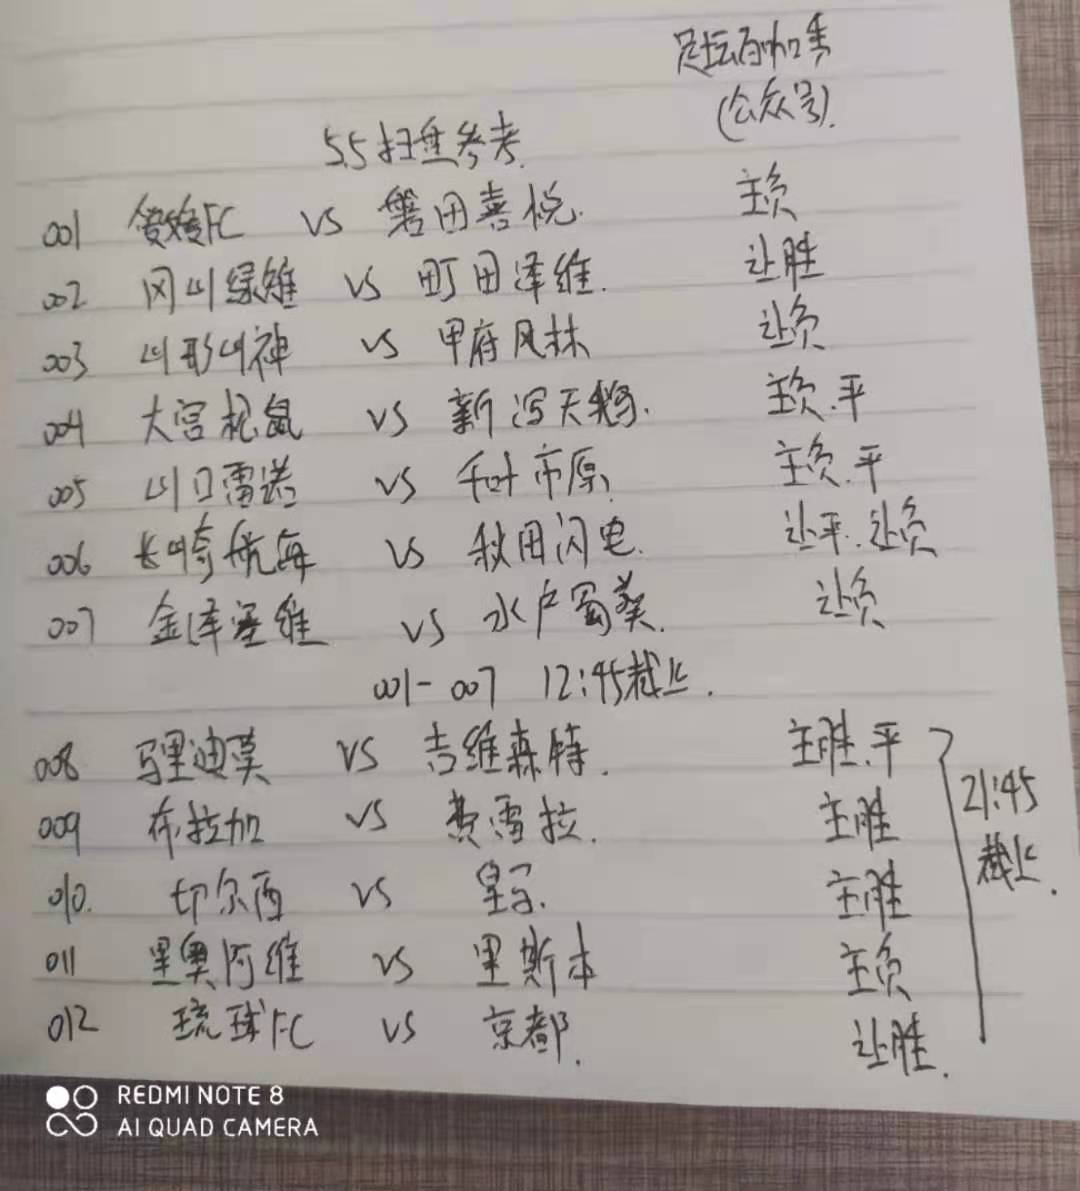 足坛百加隽
(公众号).
5.5扫盘参考.
001 爱媛FC VS 磐田喜悦. 主负
002 冈山绿雉 VS 町田泽维. 让胜
003 山形山神 VS 甲府风林 让负
004 大宫松鼠 VS 新泻天鹅. 主负.平
005 山口雷诺 VS 千叶市原. 主负.平
006 长崎航海 VS 秋田闪电. 让平.让负
007 金泽塞维 VS 水户蜀葵. 让负
001-007 12:45截止.
008 马里迪莫 VS 吉维森特. 主胜.平
009 布拉加 VS 费雷拉. 主胜
010. 切尔西 VS 皇马. 主胜
011 里奥阿维 VS 里斯本 主负
012 琉球FC VS 京都. 让胜.
21:45
截止.
REDMI NOTE 8
AI QUAD CAMERA